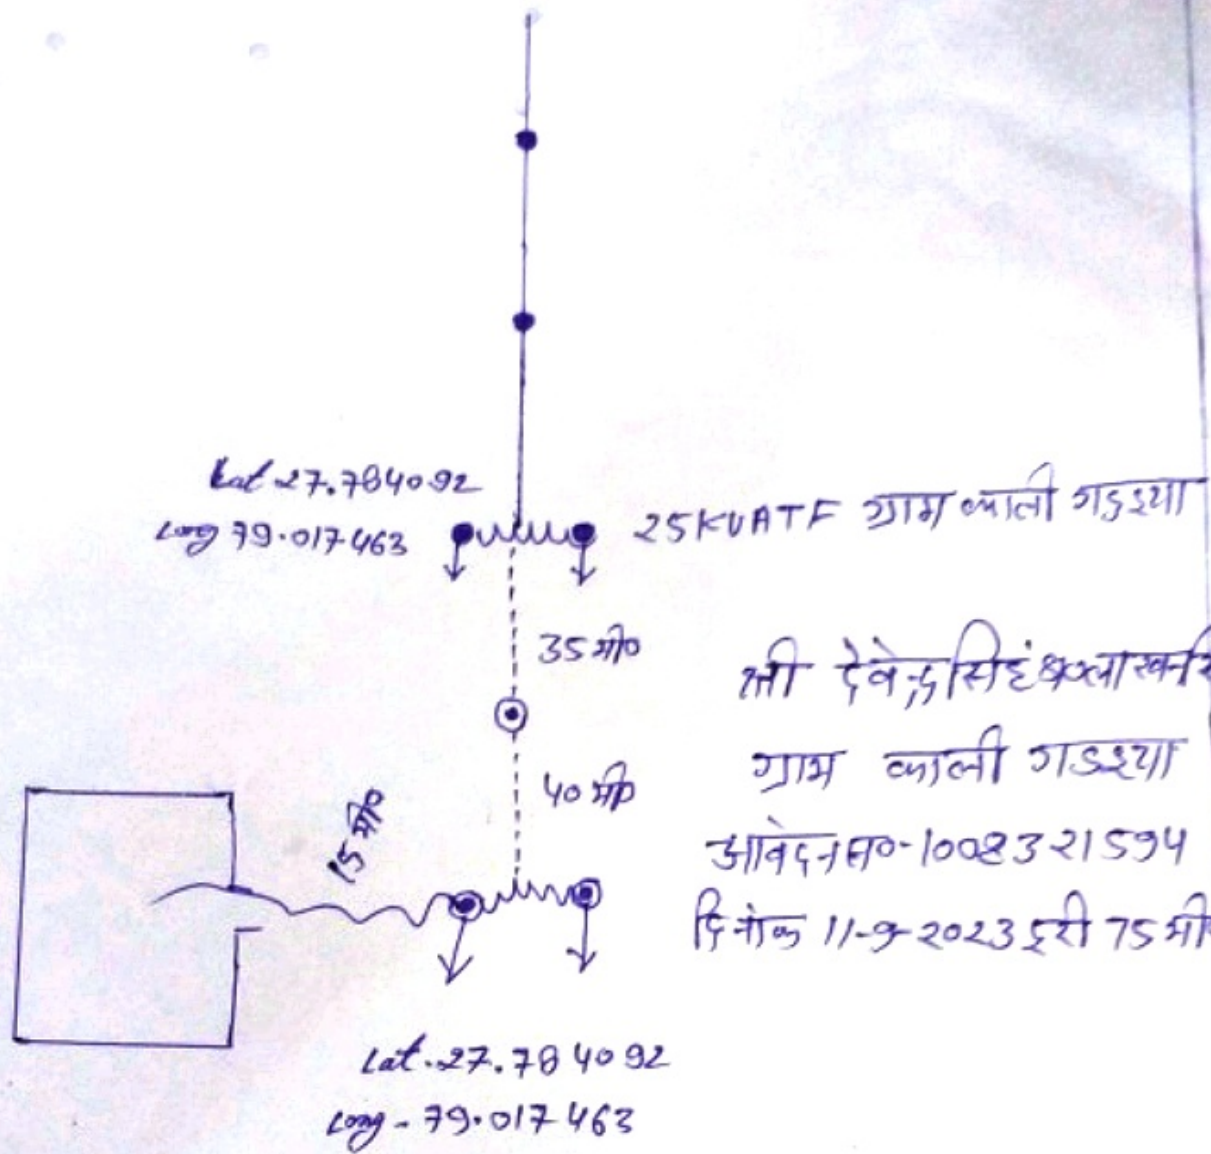 Lat 27.784092
Long 79.017463
25KVATF ग्राम काली गडइया
35 मी०
श्री देवेन्द्रसिहं
40 मी०
ग्राम काली गडइया
15 मी०
आवेदन स०-1008321594
दिनांक 11-9-2023 दूरी 75 मी०
Lat. 27.784092
Long - 79.017463